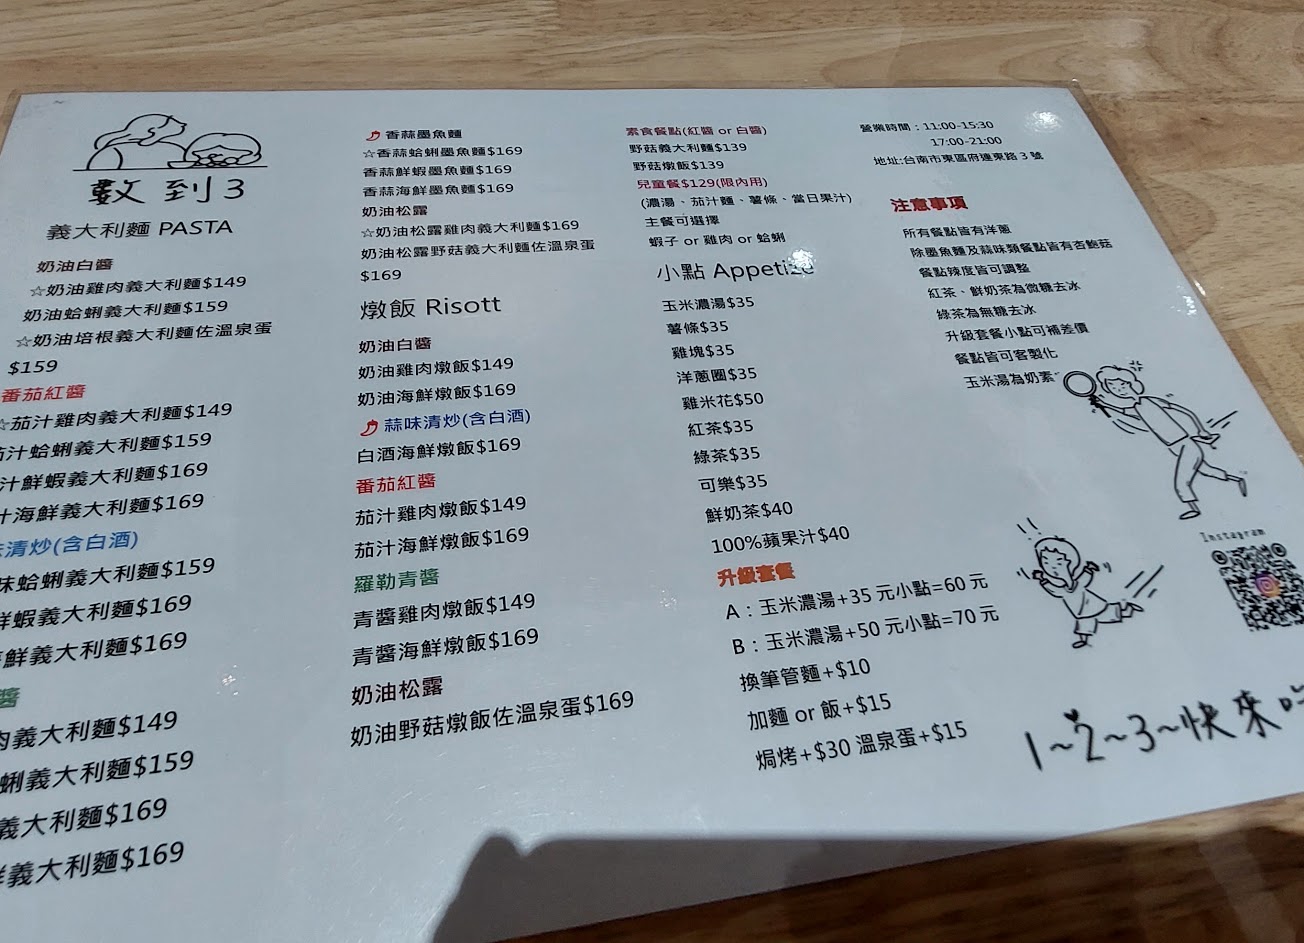 數到3
義大利麵 PASTA
奶油白醬
☆奶油雞肉義大利麵$149
奶油蛤蜊義大利麵$159
☆奶油培根義大利麵佐溫泉蛋
$159
番茄紅醬
☆茄汁雞肉義大利麵$149
茄汁蛤蜊義大利麵$159
汁鮮蝦義大利麵$169
汁海鮮義大利麵$169
味清炒(含白酒)
味蛤蜊義大利麵$159
鮮蝦義大利麵$169
海鮮義大利麵$169
醬
肉義大利麵$149
蜊義大利麵$159
義大利麵$169
鮮義大利麵$169
香蒜墨魚麵
☆香蒜蛤蜊墨魚麵$169
香蒜鮮蝦墨魚麵$169
香蒜海鮮墨魚麵$169
奶油松露
☆奶油松露雞肉義大利麵$169
奶油松露野菇義大利麵佐溫泉蛋
$169
燉飯 Risott
奶油白醬
奶油雞肉燉飯$149
奶油海鮮燉飯$169
蒜味清炒(含白酒)
白酒海鮮燉飯$169
番茄紅醬
茄汁雞肉燉飯$149
茄汁海鮮燉飯$169
羅勒青醬
青醬雞肉燉飯$149
青醬海鮮燉飯$169
奶油松露
奶油野菇燉飯佐溫泉蛋$169
素食餐點(紅醬 or 白醬)
野菇義大利麵$139
野菇燉飯$139
兒童餐$129(限內用)
(濃湯、茄汁麵、薯條、當日果汁)
主餐可選擇
蝦子 or 雞肉 or 蛤蜊
小點 Appetize
玉米濃湯$35
薯條$35
雞塊$35
洋蔥圈$35
雞米花$50
紅茶$35
綠茶$35
可樂$35
鮮奶茶$40
100%蘋果汁$40
升級套餐
A：玉米濃湯+35 元小點=60 元
B：玉米濃湯+50 元小點=70 元
換筆管麵+$10
加麵 or 飯+$15
焗烤+$30 溫泉蛋+$15
營業時間：11:00-15:30
17:00-21:00
地址:台南市東區府連東路 3 號
注意事項
所有餐點皆有洋蔥
除墨魚麵及蒜味類餐點皆有杏鮑菇
餐點辣度皆可調整
紅茶、鮮奶茶為微糖去冰
綠茶為無糖去冰
升級套餐小點可補差價
餐點皆可客製化
玉米湯為奶素
Instagram
1~2~3~快來吃